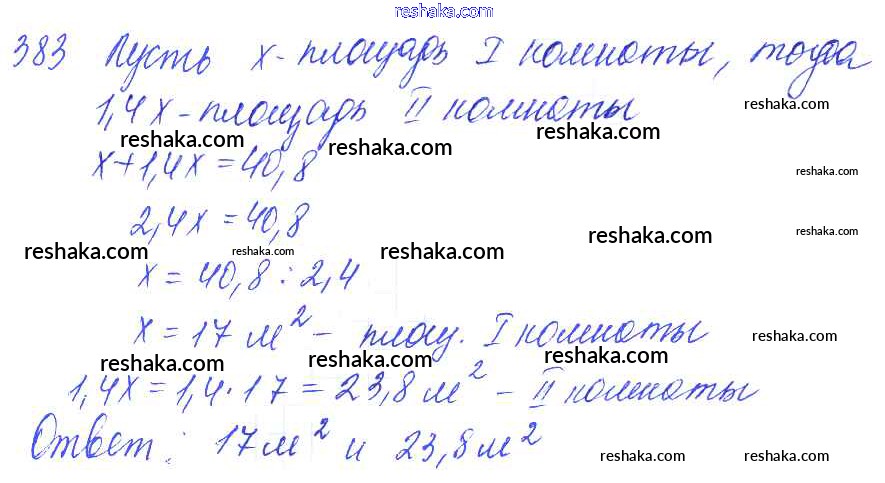 reshaka.com
383 Пусть x - площадь I комнаты, тогда
1,4x - площадь II комнаты
reshaka.com
reshaka.com reshaka.com reshaka.com
x + 1,4x = 40,8
reshaka.com
2,4x = 40,8
reshaka.com reshaka.com
reshaka.com reshaka.com reshaka.com
x = 40,8 : 2,4
x = 17 м² - площ. I комнаты
reshaka.com
reshaka.com reshaka.com reshaka.com
1,4x = 1,4 · 17 = 23,8 м² - II комнаты
Ответ: 17 м² и 23,8 м²
reshaka.com reshaka.com